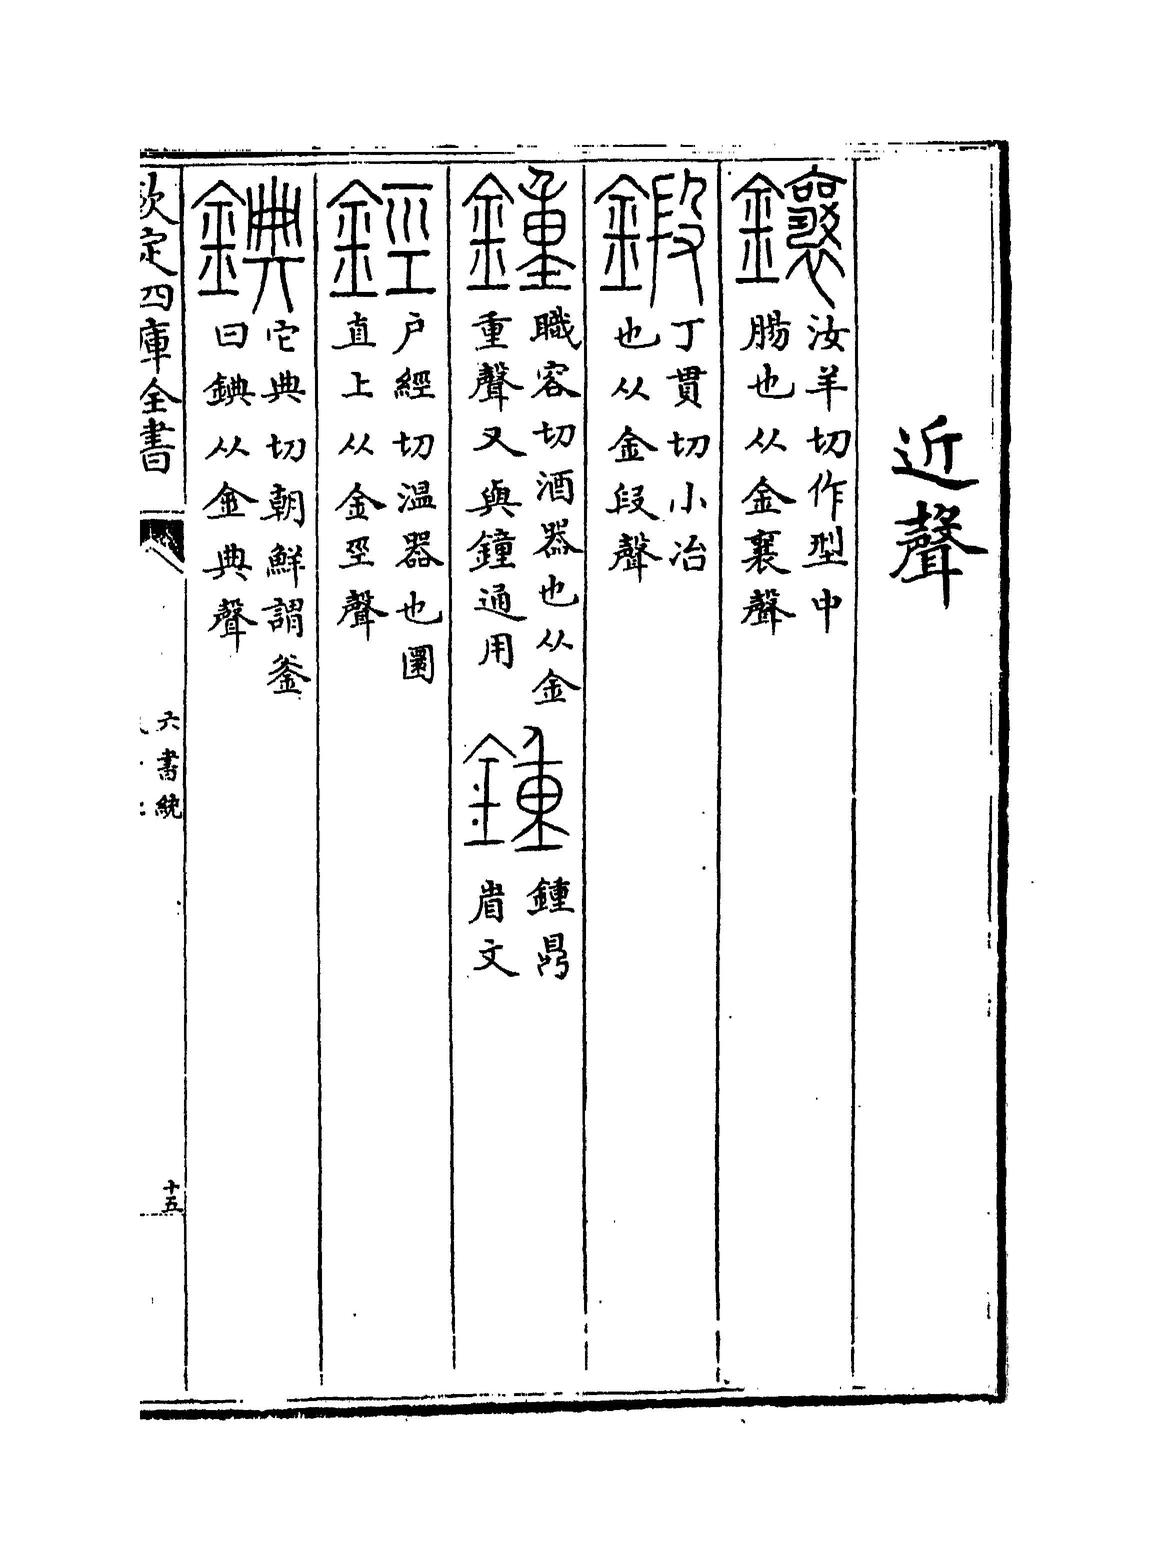 近聲
鑲
汝羊切作型中
腸也从金襄聲
鍛
丁貫切小冶
也从金段聲
鍾
職容切酒器也从金
重聲又與鐘通用
鍾
鍾鼎
省文
鋞
户經切温器也圜
直上从金巠聲
錪
它典切朝鮮謂釜
曰錪从金典聲
欽定四庫全書
六書統
十五